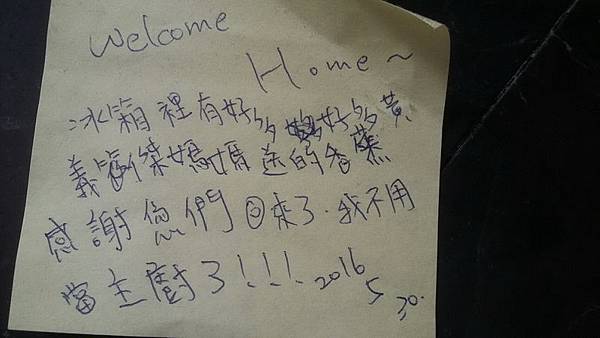 Welcome
Home~
冰箱裡有好多好多黃
義傑媽媽送的香蕉
感謝您們回來了.我不用
當主廚了!!! 2016
5
30.